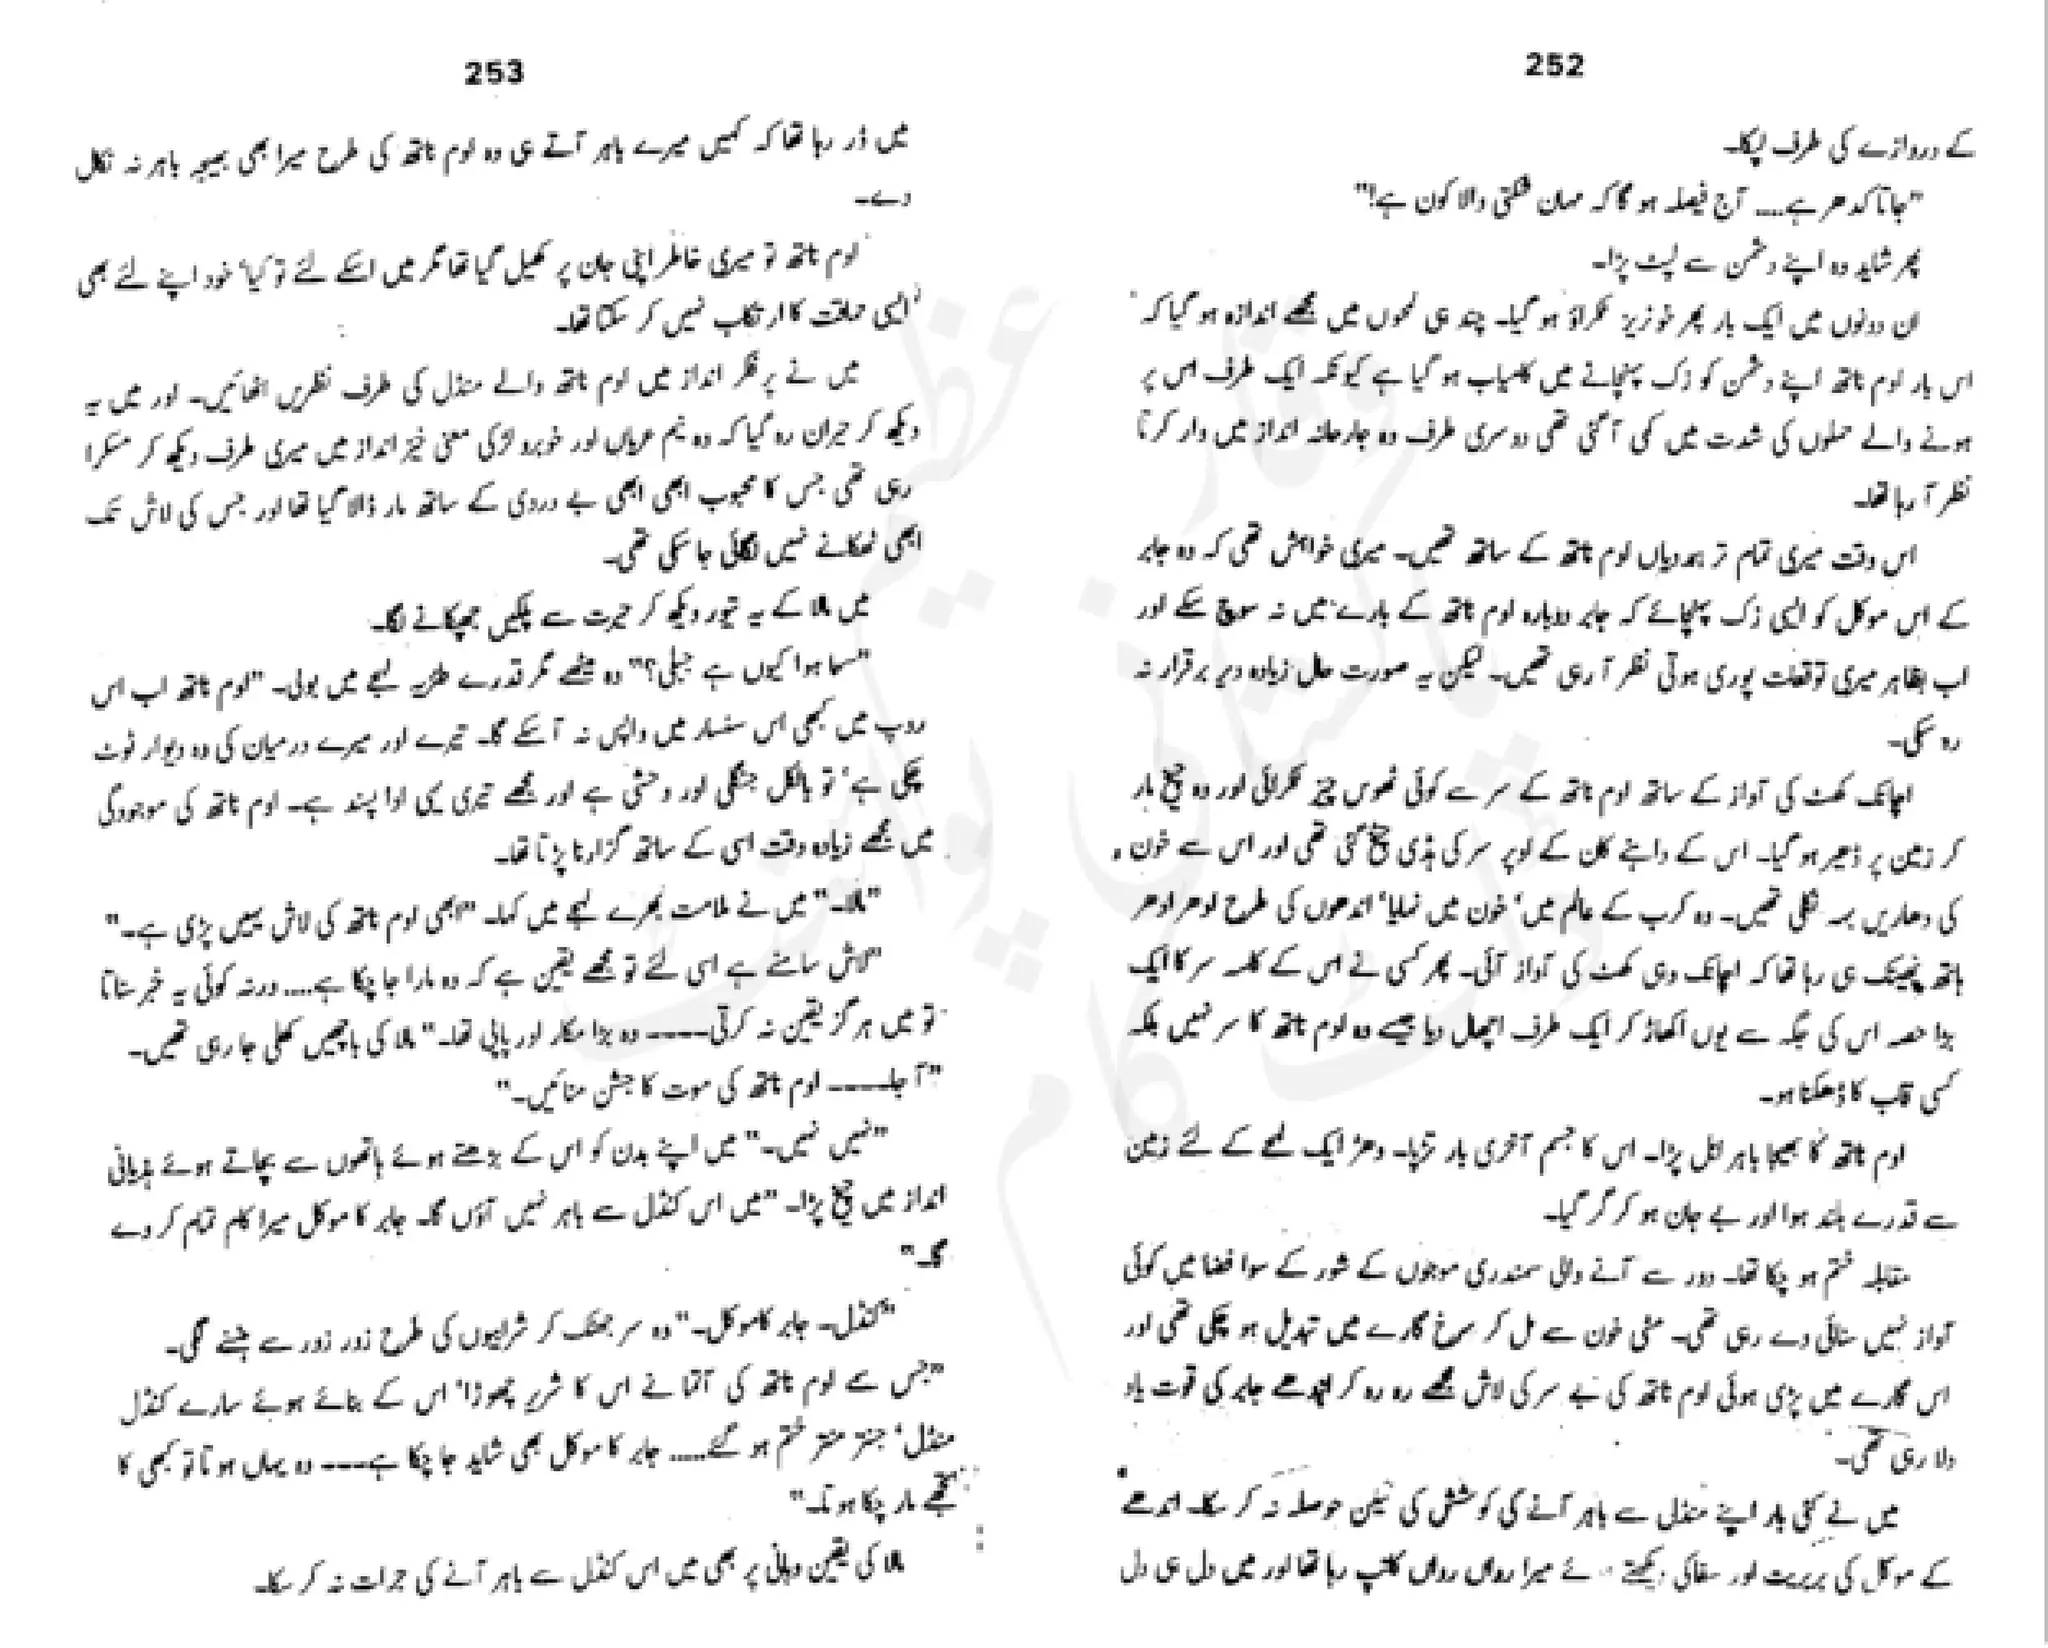 252
کے دروازے کی طرف لپکا۔
"جاتا کدھر ہے.... آج فیصلہ ہو گا کہ مہان شکتی والا کون ہے!"
پھر شاید وہ اپنے دشمن سے لپٹ پڑا۔
ان دونوں میں ایک بار پھر خونریز ٹکراؤ ہو گیا۔ چند ہی لمحوں میں مجھے اندازہ ہو گیا کہ
اس بار اوم ناتھ اپنے دشمن کو زک پہنچانے میں کامیاب ہو گیا ہے کیونکہ ایک طرف اس پر
ہونے والے حملوں کی شدت میں کمی آ گئی تھی دوسری طرف وہ جارحانہ انداز میں وار کرتا
نظر آ رہا تھا۔
اس وقت میری تمام تر ہمدردیاں اوم ناتھ کے ساتھ تھیں۔ میری خواہش تھی کہ وہ جابر
کے اس موکل کو ایسی زک پہنچائے کہ جابر دوبارہ اوم ناتھ کے بارے میں نہ سوچ سکے اور
اب بظاہر میری توقعات پوری ہوتی نظر آ رہی تھیں۔ لیکن یہ صورت حال زیادہ دیر برقرار نہ
رہ سکی۔
اچانک کھٹ کی آواز کے ساتھ اوم ناتھ کے سر سے کوئی ٹھوس چیز ٹکرائی اور وہ چیخ مار
کر زمین پر ڈھیر ہو گیا۔ اس کے داہنے کان کے اوپر سر کی ہڈی چیخ گئی تھی اور اس سے خون
کی دھاریں بہہ نکلی تھیں۔ وہ کرب کے عالم میں' خون میں نہایا' اندھوں کی طرح ادھر ادھر
ہاتھ پھینک ہی رہا تھا کہ اچانک وہی کھٹ کی آواز آئی۔ پھر کسی نے اس کے کاسہ سر کا ایک
بڑا حصہ اس کی جگہ سے یوں اکھاڑ کر ایک طرف اچھال دیا جیسے وہ اوم ناتھ کا سر نہیں بلکہ
کسی قاب کا ڈھکنا ہو۔
اوم ناتھ کا بھیجا باہر ابل پڑا۔ اس کا جسم آخری بار تڑپا۔ دھڑ ایک لمحے کے لئے زمین
سے قدرے بلند ہوا اور بے جان ہو کر گر گیا۔
مقابلہ ختم ہو چکا تھا۔ دور سے آنے والی سمندری موجوں کے شور کے سوا فضا میں کوئی
آواز نہیں سنائی دے رہی تھی۔ مٹی خون سے مل کر سرخ گارے میں تبدیل ہو چکی تھی اور
اس گارے میں پڑی ہوئی اوم ناتھ کی بے سر کی لاش مجھے رہ رہ کر اندھے جابر کی قوت یاد
دلا رہی تھی۔
میں نے کئی بار اپنے منڈل سے باہر آنے کی کوشش کی لیکن حوصلہ نہ کر سکا۔ اندھے
کے موکل کی بربریت اور سفاکی دیکھتے ئے میرا رواں رواں کانپ رہا تھا اور میں دل ہی دل
253
میں ڈر رہا تھا کہ کہیں میرے باہر آتے ہی وہ اوم ناتھ کی طرح میرا بھی بھیجہ باہر نہ نکال
دے۔
اوم ناتھ تو میری خاطر اپنی جان پر کھیل گیا تھا مگر میں اسکے لئے تو کیا' خود اپنے لئے بھی
ایسی حماقت کا ارتکاب نہیں کر سکتا تھا۔
میں نے پر فکر انداز میں اوم ناتھ والے منڈل کی طرف نظریں اٹھائیں۔ اور میں یہ
دیکھ کر حیران رہ گیا کہ وہ نیم عریاں اور خوبرو لڑکی معنی خیز انداز میں میری طرف دیکھ کر مسکرا
رہی تھی جس کا محبوب ابھی ابھی بے دردی کے ساتھ مار ڈالا گیا تھا اور جس کی لاش تک
ابھی ٹھکانے نہیں لگائی جا سکی تھی۔
میں مالا کے یہ تیور دیکھ کر حیرت سے پلکیں جھپکانے لگا۔
"سہا ہوا کیوں ہے جبلی؟" وہ میٹھے مگر قدرے طنزیہ لہجے میں بولی۔ "اوم ناتھ اب اس
روپ میں کبھی اس سنسار میں واپس نہ آ سکے گا۔ تیرے اور میرے درمیان کی وہ دیوار ٹوٹ
چکی ہے' تو بالکل جنگلی اور وحشی ہے اور مجھے تیری یہی ادا پسند ہے۔ اوم ناتھ کی موجودگی
میں مجھے زیادہ وقت اسی کے ساتھ گزارنا پڑتا تھا۔
"مالا۔" میں نے ملامت بھرے لہجے میں کہا۔ "ابھی اوم ناتھ کی لاش یہیں پڑی ہے۔"
"لاش سامنے ہے اسی لئے تو مجھے یقین ہے کہ وہ مارا جا چکا ہے.... ورنہ کوئی یہ خبر سناتا
تو میں ہرگز یقین نہ کرتی---- وہ بڑا مکار اور پاپی تھا۔" مالا کی باچھیں کھلی جا رہی تھیں۔
"آ جا---- اوم ناتھ کی موت کا جشن منائیں۔"
"نہیں نہیں۔" میں اپنے بدن کو اس کے بڑھتے ہوئے ہاتھوں سے بچاتے ہوئے ہذیانی
انداز میں چیخ پڑا۔ "میں اس کنڈل سے باہر نہیں آؤں گا۔ جابر کا موکل میرا کام تمام کر دے
گا۔"
"کنڈل۔ جابر کا موکل۔" وہ سر جھٹک کر شرابیوں کی طرح زور زور سے ہنسنے لگی۔
"جس سے اوم ناتھ کی آتما نے اس کا شریر چھوڑا' اس کے بنائے ہوئے سارے کنڈل
منڈل' جنتر منتر ختم ہو گئے.... جابر کا موکل بھی شاید جا چکا ہے---- وہ یہاں ہوتا تو کبھی کا
تجھے مار چکا ہوتا۔"
مالا کی یقین دہانی پر بھی میں اس کنڈل سے باہر آنے کی جرات نہ کر سکا۔